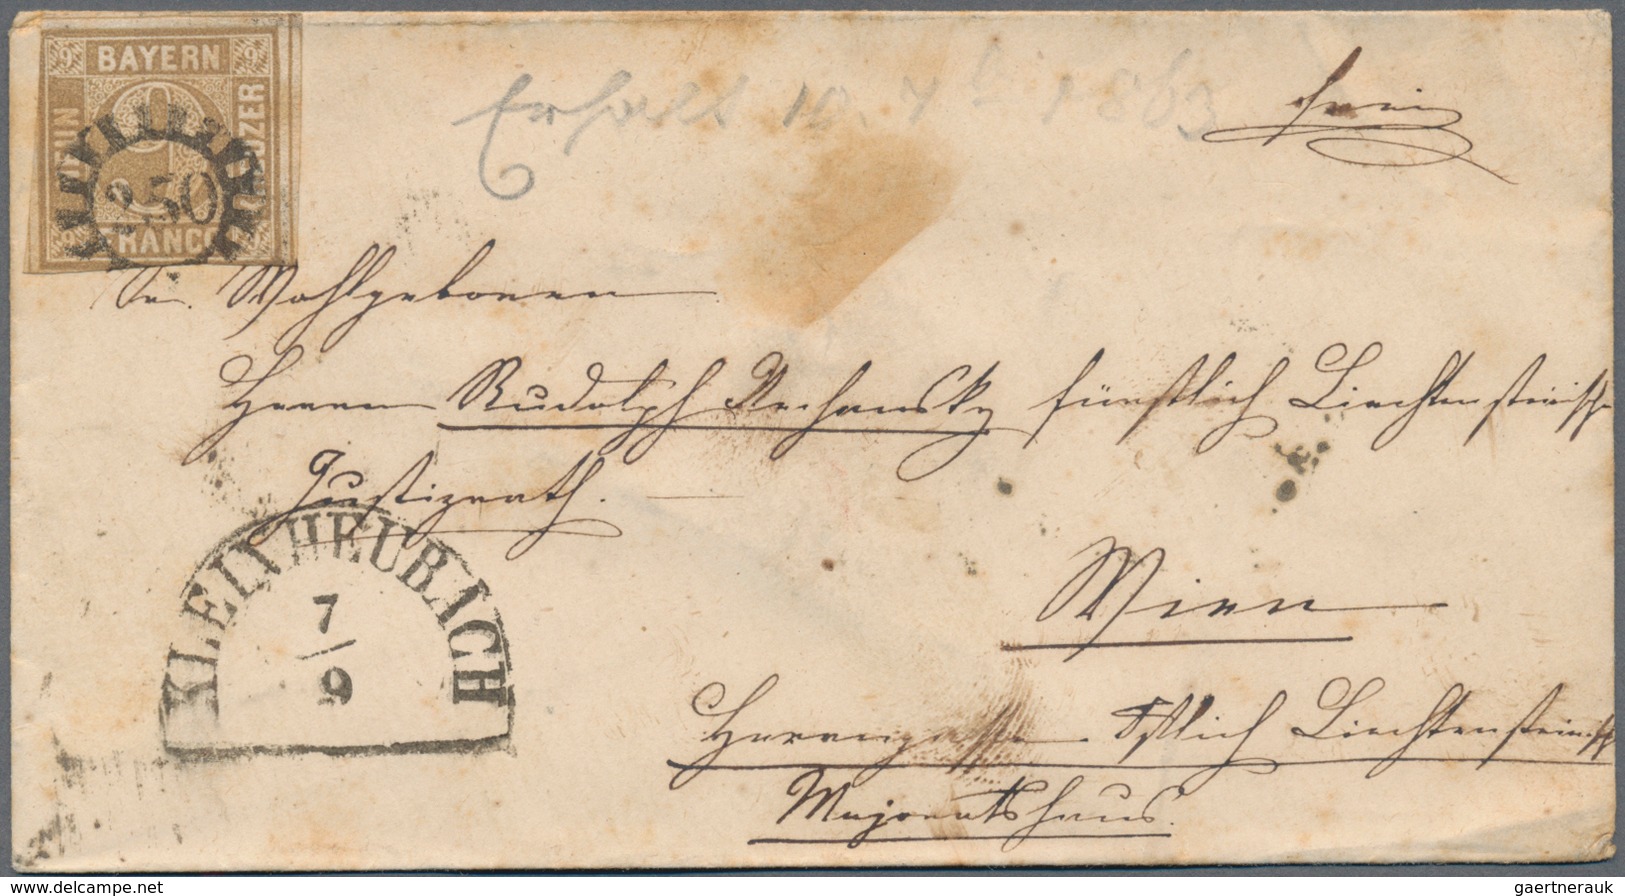 9 BAYERN 9
NEUN
KREUZER
9
250
9 FRANCO 9
Erhalt 10. 7b 1863
frei
Sr. Wohlgeboren
Herrn Rudolph fürstlich Liechtensteinisch
Justizrath.
KLEINHEUBACH
7/9
Wien
Herrengasse Fstlich Liechtensteinisch
Majoratshaus.
delcampe.net
gaertnerauk